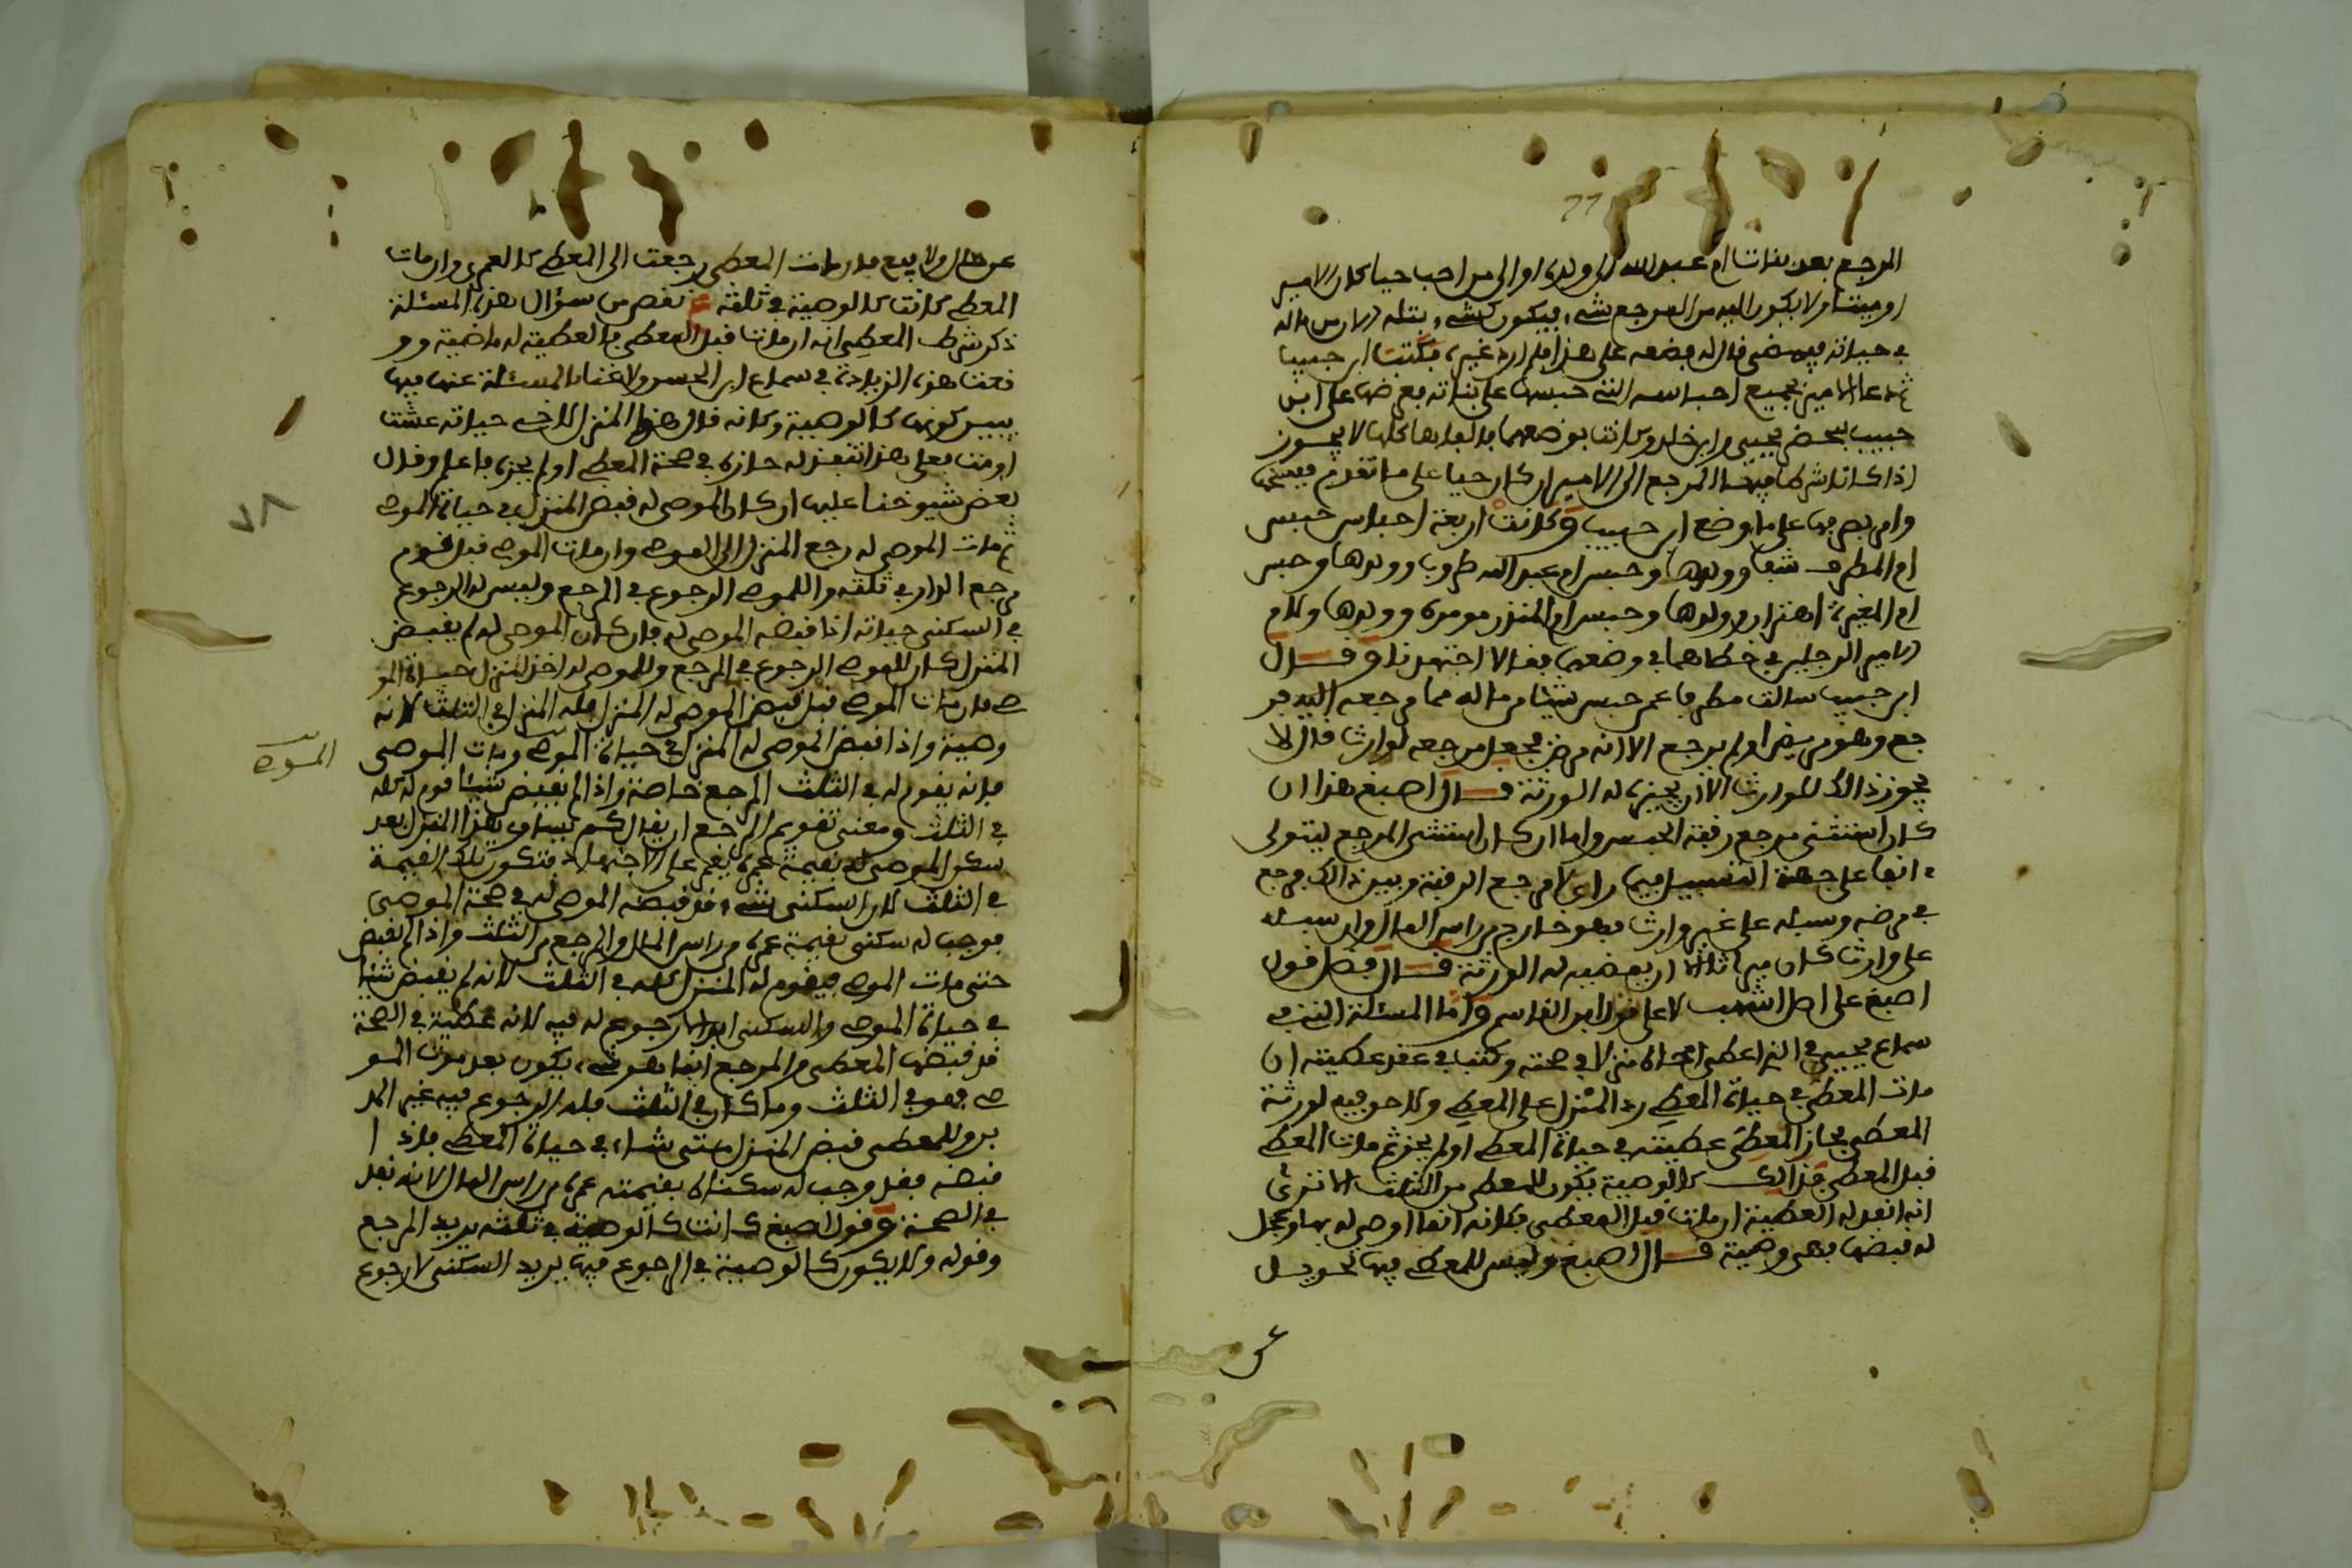 المرجع بعد بنات ام عبد الله الى ولدي او الى من احب حيا كان الامير
او ميتا ولا يكون اليه من المرجع شيء فيكون كشيء بتله من ماله
في حياته فيمضى قال له فضعه على هذا فلم ارد غيره فكتب ابن حبيب
ثم دعا الامير بجميع احباسه التي حبسها على بناته بعرضها على ابن
حبيب بمحضر يحيى وابن خالد وكانت بوضعهما فالفاها كلها لا يجوز
اذا كان اشترط فيها المرجع الى الامير ان كان حيا على ما تقدم
وامر بصرفها على ما وضع ابن حبيب وكانت اربعة احباس حبس
ام المطرف شفا وولدها وحبس ام عبد الله طروب وولدها وحبس
ام المغيرة اهتزاز وولدها وحبس ام المنذر مومرة وولدها ولام
الامير الرجلين في خطاهما في وضعها فقالا اجتهدنا وقال
ابن حبيب سالت مطرفا عمن حبس شيئا من ماله مما مرجعه اليه فر
جع وهو مريض او لم يرجع الا انه مرض فجعل مرجعه لوارث قال لا
يجوز ذلك للوارث الا ان يجيزه له الورثة قال اصبغ هذا ان
كان استثنى مرجع رقبة الحبس واما ان كان استثنى المرجع ليتولى
انفا على جهة التسبيل فيما راى لا مرجع الرقبة وبين ذلك فرجع
في مرضه وسبله على غير وارث فهو خارج من راس المال وان سبله
على وارث كان ميراثا الا ان يمضيه له الورثة قال فضل قول
اصبغ على اصل اشهب لا على قول ابن القاسم واما المسئلة التي في
سماع يحيى في الذي اعطى اخاه منزلا في صحته وكتب في عقد عطيته ان
مات المعطى في حياة المعطي رد المنزل على المعطي ولا حق فيه لورثة
المعطى فحاز المعطى عطيته في حياة المعطي او لم يحز ثم مات المعطي
قبل المعطى فذلك كالوصية يكون للمعطى من الثلث الا ترى
انه انفد له العطية ان مات قبل المعطى فكانه انما اوصى له بها وعجل
له قبضها فهي وصية قال اصبغ وليس للمعطي فيها تحويل
عن
عن حال ولا بيع فان مات المعطى رجعت الى المعطي كالعمرى وان مات
المعطي كانت كالوصية في ثلثه نقص من سؤال هذه المسئلة
ذكر شرط المعطي انه ان مات قبل المعطى فالعطية له ماضية وو
قعت هذه الزيادة في سماع ابن الحسن ولا غنا بالمسئلة عنها فيها
يبين كونها كالوصية وكانه قال هذا المنزل لاخي حياته عشت
او مت فعلى هذا تنفذ له حازه في صحة المعطي او لم يحزه فاعلم وقال
بعض شيوخنا عليها ان كان الموصى له قبض المنزل في حياة الموصي
ثم مات الموصى له رجع المنزل الى الموصي وان مات الموصي قبل قوم
مرجع الدار في ثلثه وللموصي الرجوع في المرجع وليس له الرجوع
في السكنى حياته اذا قبضه الموصى له فان كان الموصى له لم يقبض
المنزل كان للموصي الرجوع في المرجع وللموصى له اخذ المنزل حياة المو
صي فان مات الموصي قبل قبض الموصى له المنزل فله المنزل في الثلث لانه
وصية واذا قبض الموصى له المنزل في حياة الموصي ومات الموصي
الموصي
فانه يقوم له في الثلث المرجع خاصة واذا لم يقبض شيئا قوم له كله
في الثلث ومعنى تقويم المرجع ان يقال كم يساوي هذا المنزل بعد
سكنى الموصى له بقيمة عمره يقيم على الاجتهاد فتكون تلك القيمة
في الثلث لان السكنى شيء قد قبضه الموصى له في صحة الموصي
فوجب له سكنى بقيمة عمره من راس المال والمرجع من الثلث واذا لم يقبض
حتى مات الموصي فيقوم له المنزل كله في الثلث لانه لم يقبض شيئا
في حياة الموصي والسكنى ايضا لا رجوع له فيه لانه عطية في الصحة
قد قبضها المعطى والمرجع انما هو شيء يكون بعد موت المو
صي فهو في الثلث وما كان في الثلث فله الرجوع فيه غير المد
بر وللمعطى قبض المنزل متى شاء في حياة المعطي فاذا
قبضه فقد وجب له سكناه بقيمته عمره من راس المال لانه فعل
في الصحة وقول اصبغ كانت كالوصية في ثلثه يريد المرجع
وقوله ولا يكون كالوصية في الرجوع فيها يريد السكنى لا رجوع